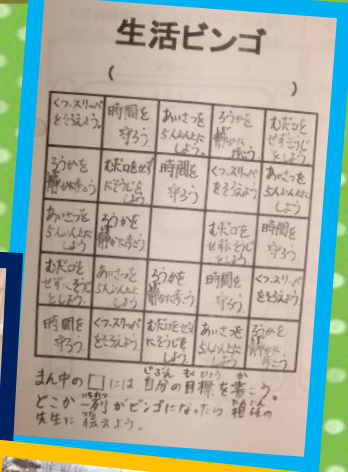 生活ビンゴ
( )
くつ、スリッパをそろえよう。 時間を守ろう あいさつを5んふんにしよう。 ろうかを静かに歩こう むだ口をせずそうじをしよう
ろうかを静かに歩こう むだ口をせずにそうじをしよう 時間を守ろう くつ、スリッパをそろえよう あいさつを5んふんにしよう
あいさつを5んふんにしよう ろうかを静かに歩こう むだ口をせずにそうじをしよう 時間を守ろう。
むだ口をせずにそうじをしよう。 あいさつを5んふんにしよう ろうかを静かに歩こう 時間を守ろう くつ、スリッパをそろえよう。
時間を守ろう。 くつ、スリッパをそろえよう むだ口をせずにそうじをしよう あいさつを5んふんにしよう ろうかを静かに歩こう
まん中の□には自分の目標を書こう。
どこか一列がビンゴになったら、担任の
先生に伝えよう。